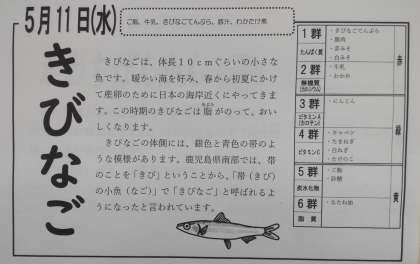 5月11日(水)
ご飯、牛乳、きびなごてんぷら、豚汁、わかたけ煮
きびなご
きびなごは、体長10cmぐらいの小さな
魚です。暖かい海を好み、春から初夏にかけ
て産卵のために日本の海岸近くにやってきま
す。この時期のきびなごは脂がのって、おい
しくなります。
きびなごの体側には、銀色と青色の帯のよ
うな模様があります。鹿児島県南部では、帯
のことを「きび」ということから、「帯(きび)
の小魚(なご)」で「きびなご」と呼ばれるよ
うになったと言われています。
1群
たんぱく質
・きびなごてんぷら
・豚肉
・赤みそ
・白みそ
2群
無機質
(カルシウム)
・牛乳
・わかめ
赤
3群
ビタミンA
(カロテン)
・にんじん
4群
ビタミンC
・キャベツ
・たまねぎ
・白ねぎ
・たけのこ
緑
5群
炭水化物
・ご飯
・砂糖
6群
脂質
・なたね油
黄